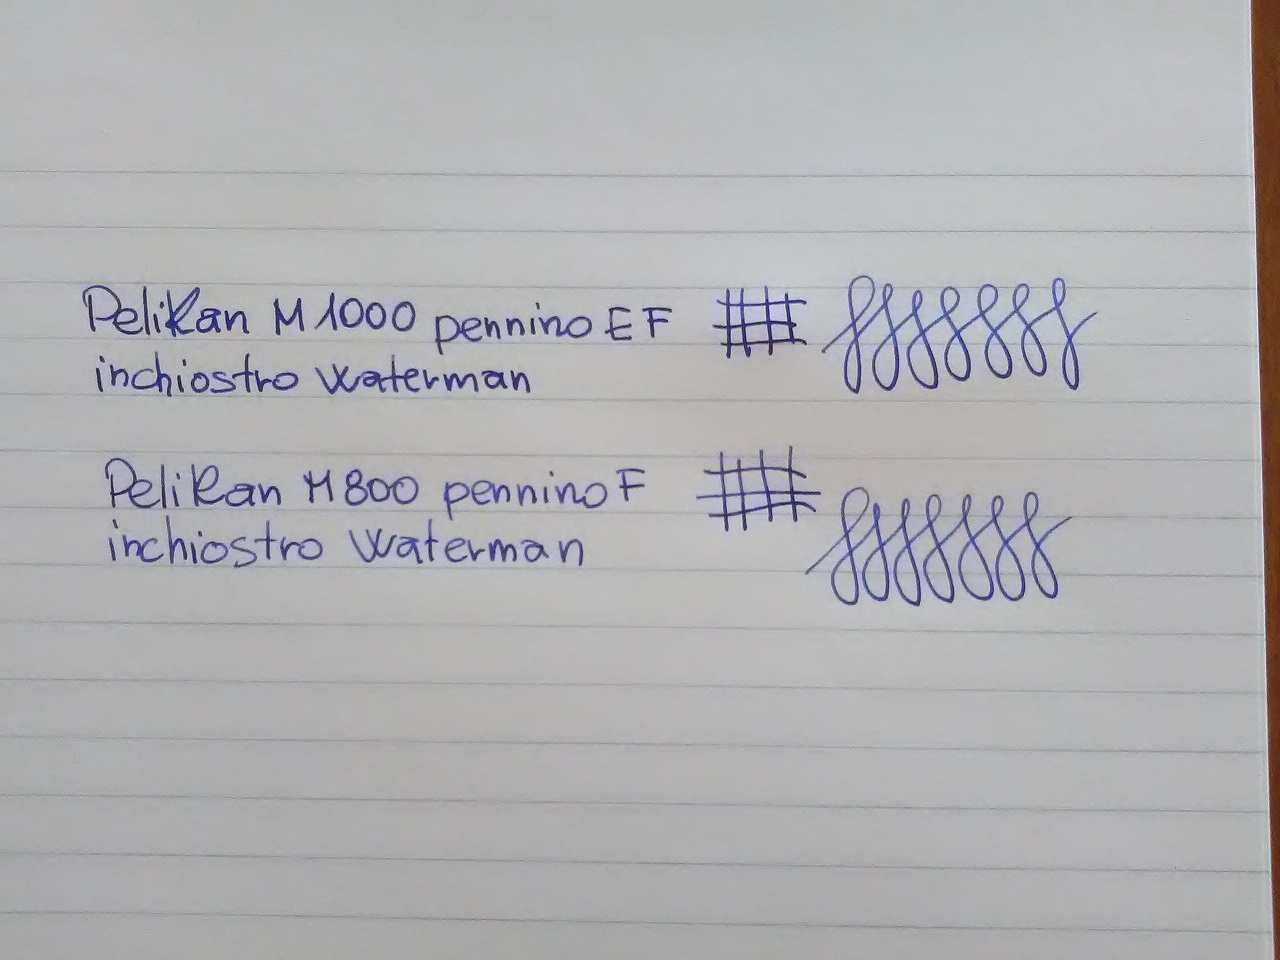 Pelikan M1000 pennino EF
inchiostro Waterman
Pelikan M800 pennino F
inchiostro Waterman